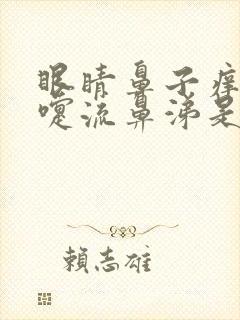 眼睛鼻子痒
嚏流鼻涕是
賴志雄